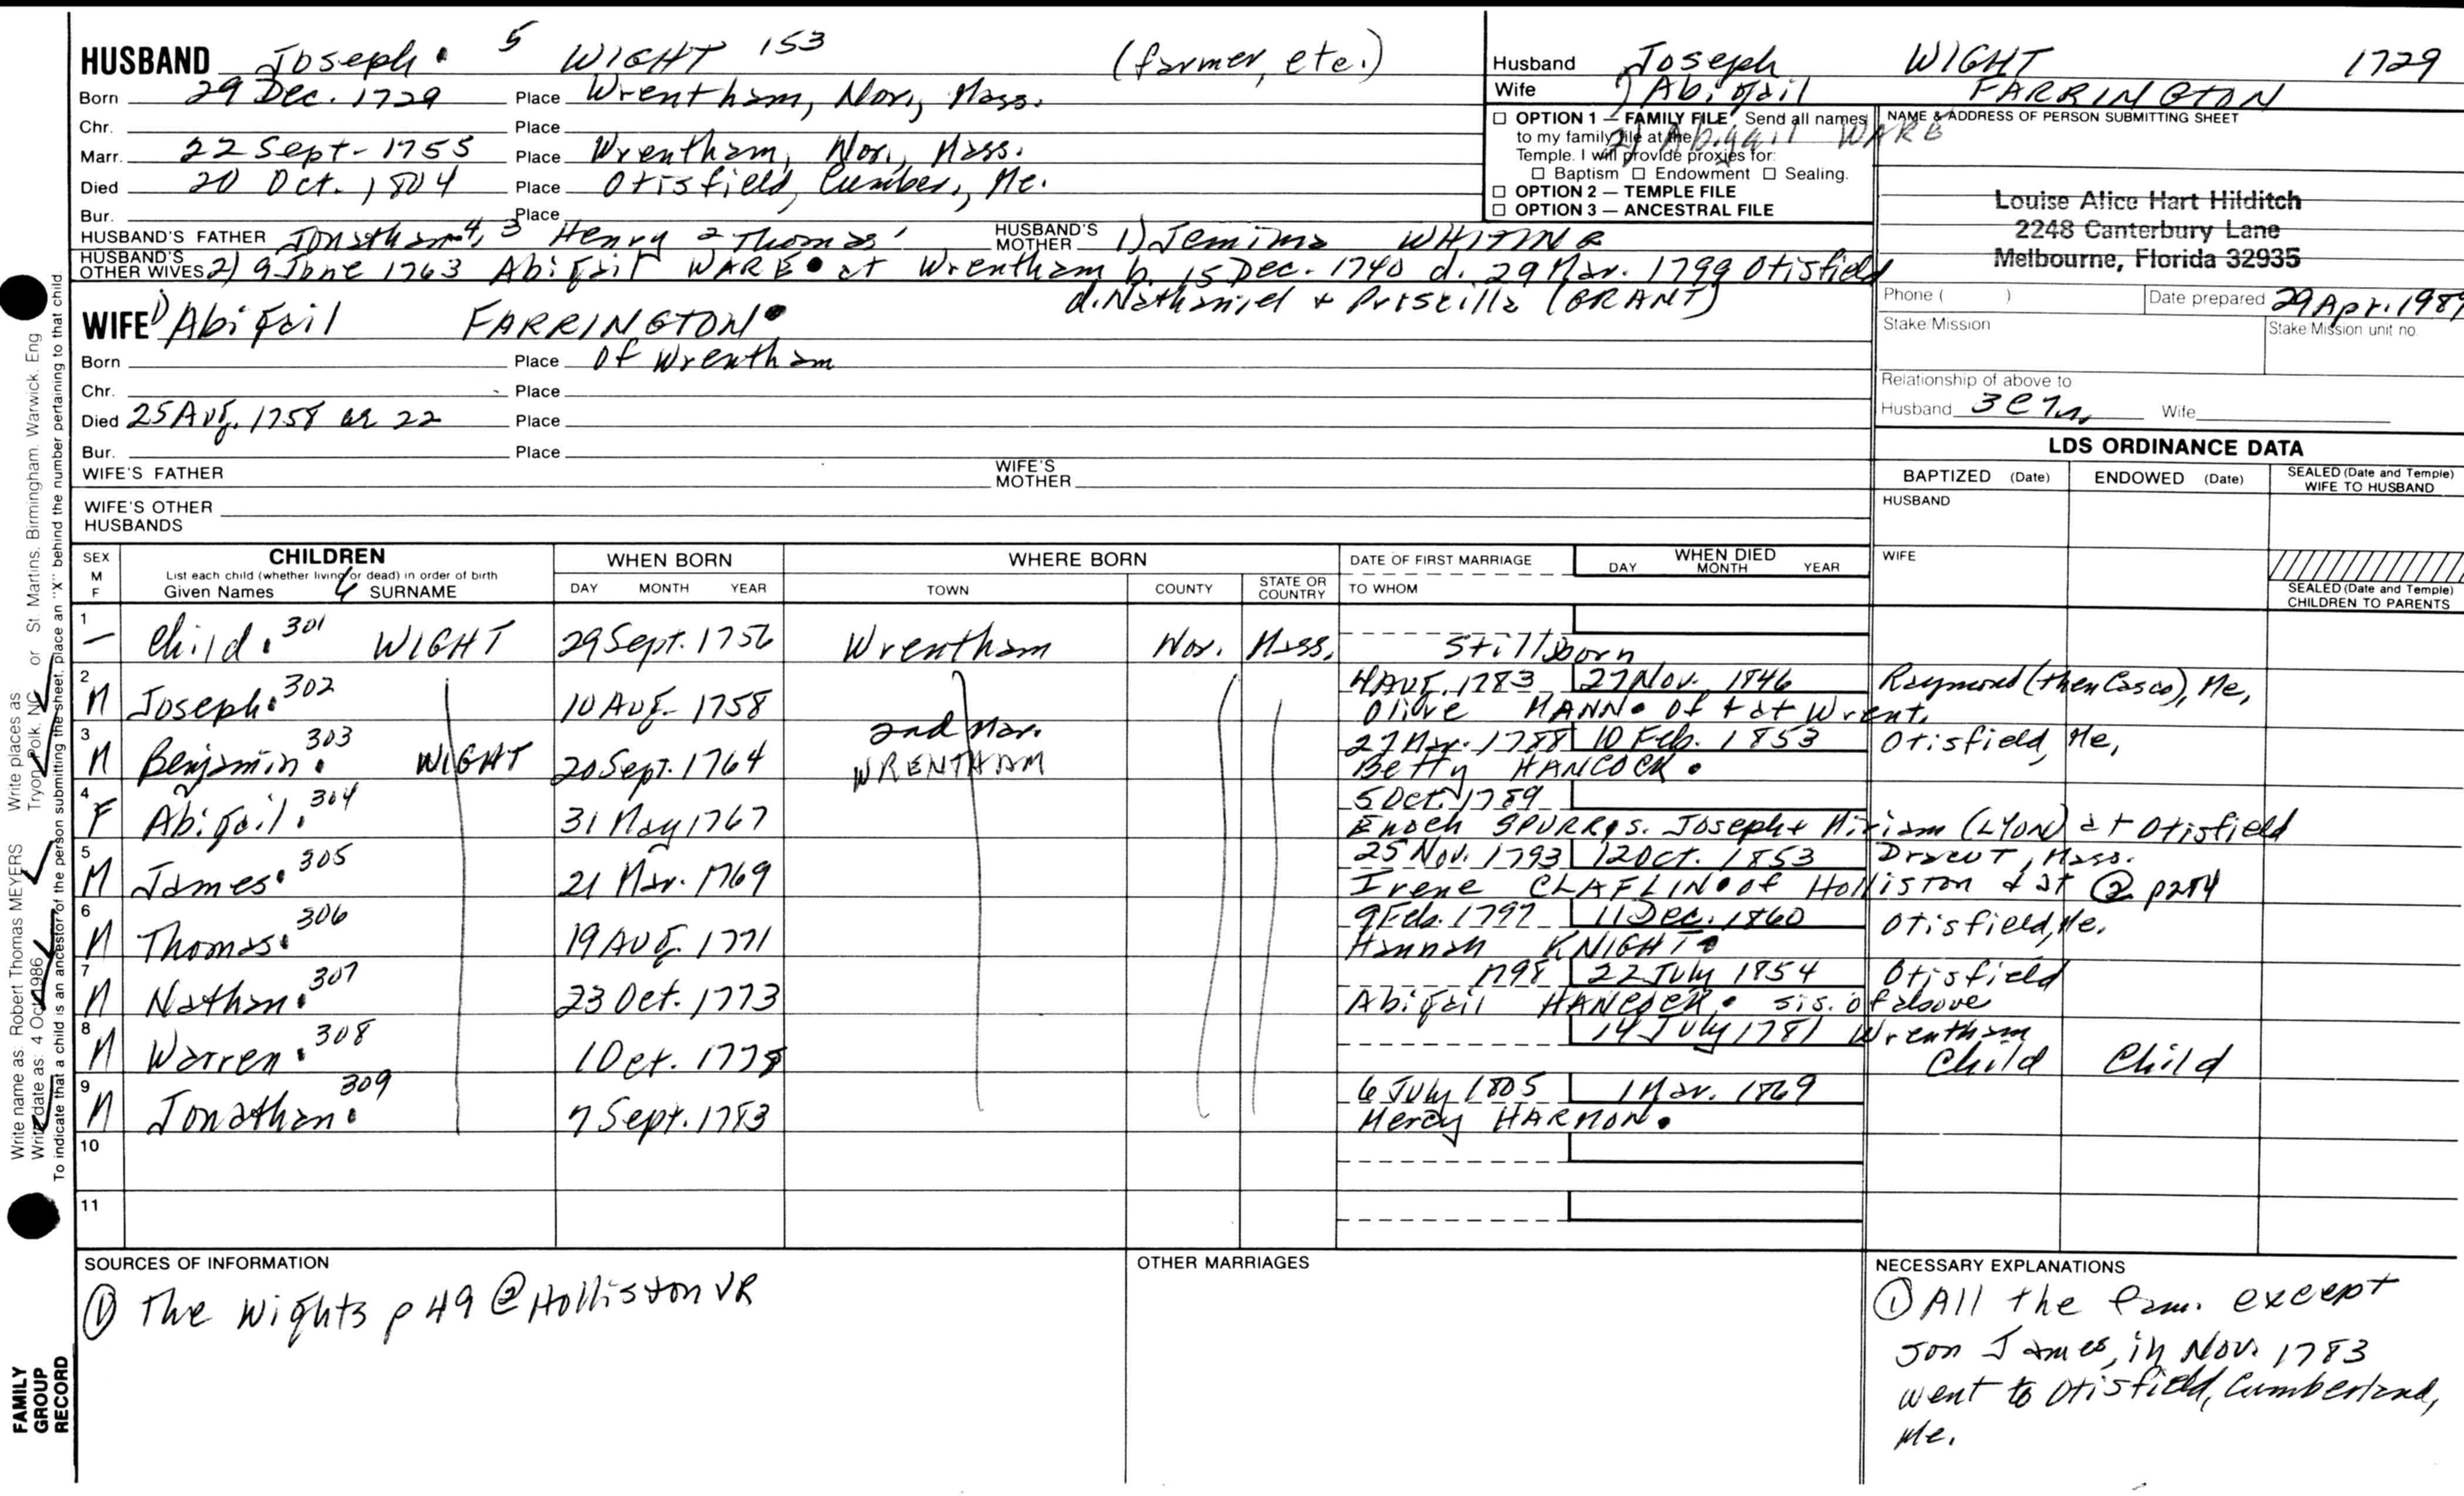 HUSBAND Joseph. 5 WIGHT 153 (farmer, etc.)
Born 29 Dec. 1729 Place Wrentham, Nor., Mass.
Chr. Place
Marr. 22 Sept. 1755 Place Wrentham, Nor., Mass.
Died 20 Oct. 1804 Place Otisfield, Cumber., Me.
Bur. Place
HUSBAND'S FATHER Jonathan 4, 3 Henry 2 Thomas 1 HUSBAND'S MOTHER 1) Jemima WHITING
HUSBAND'S OTHER WIVES 2) 9 June 1763 Abigail WARE at Wrentham b. 15 Dec. 1740 d. 29 Mar. 1799 Otisfield
d. Nathaniel + Priscilla (GRANT)
WIFE 1) Abigail FARRINGTON
Born Place of Wrentham
Chr. Place
Died 25 Aug. 1758 or 22 Place
Bur. Place
WIFE'S FATHER WIFE'S MOTHER
WIFE'S OTHER HUSBANDS
Husband Joseph WIGHT 1729
Wife 1) Abigail FARRINGTON
2) Abigail WARE
OPTION 1 — FAMILY FILE Send all names
to my family file at the
Temple. I will provide proxies for:
Baptism Endowment Sealing.
OPTION 2 — TEMPLE FILE
OPTION 3 — ANCESTRAL FILE
NAME & ADDRESS OF PERSON SUBMITTING SHEET
Louise Alice Hart Hilditch
2248 Canterbury Lane
Melbourne, Florida 32935
Phone ( ) Date prepared 29 Apr. 1989
Stake/Mission Stake/Mission unit no.
Relationship of above to
Husband Wife
LDS ORDINANCE DATA
BAPTIZED (Date) ENDOWED (Date) SEALED (Date and Temple) WIFE TO HUSBAND
HUSBAND
WIFE
SEALED (Date and Temple) CHILDREN TO PARENTS
SEX M F
CHILDREN
List each child (whether living or dead) in order of birth
Given Names SURNAME
WHEN BORN
DAY MONTH YEAR
WHERE BORN
TOWN COUNTY STATE OR COUNTRY
DATE OF FIRST MARRIAGE
TO WHOM
WHEN DIED
DAY MONTH YEAR
1 — Child. 301 WIGHT 29 Sept. 1756 Wrentham Nor. Mass. Stillborn
2 M Joseph. 302 10 Aug. 1758 4 Aug. 1783 27 Nov. 1846 Raymond (then Casco), Me,
Olive MANN. of + at Wrent.
2nd Mar.
3 M Benjamin. 303 WIGHT 20 Sept. 1764 WRENTHAM 27 Mar. 1788 10 Feb. 1853 Otisfield, Me,
Betty HANCOCK.
4 F Abigail. 304 31 May 1767 5 Oct. 1789
Enoch SPURR, s. Joseph + Miriam (LYON) at Otisfield
5 M James. 305 21 Mar. 1769 25 Nov. 1793 12 Oct. 1853 Dracut, Mass.
Irene CLAFLIN of Holliston + at ② p284
6 M Thomas. 306 19 Aug. 1771 9 Feb. 1797 11 Dec. 1860 Otisfield, Me.
Hannah KNIGHT.
7 M Nathan. 307 23 Oct. 1773 1798 22 July 1854 Otisfield
Abigail HANCOCK. sis. of above
8 M Warren. 308 1 Oct. 1778 14 July 1781 Wrentham
Child Child
9 M Jonathan. 309 7 Sept. 1783 6 July 1805 1 Mar. 1869
Mercy HARMON.
10
11
SOURCES OF INFORMATION
① The Wights p 49 ② Holliston VR
OTHER MARRIAGES
NECESSARY EXPLANATIONS
① All the fam. except
son James, in Nov. 1783
went to Otisfield, Cumberland,
Me.
Write name as: Robert Thomas MEYERS Write places as
Write date as: 4 Oct 1986 Tryon, Polk, NC or St. Martins, Birmingham, Warwick, Eng
To indicate that a child is an ancestor of the person submitting the sheet, place an "X" behind the number pertaining to that child
FAMILY
GROUP
RECORD